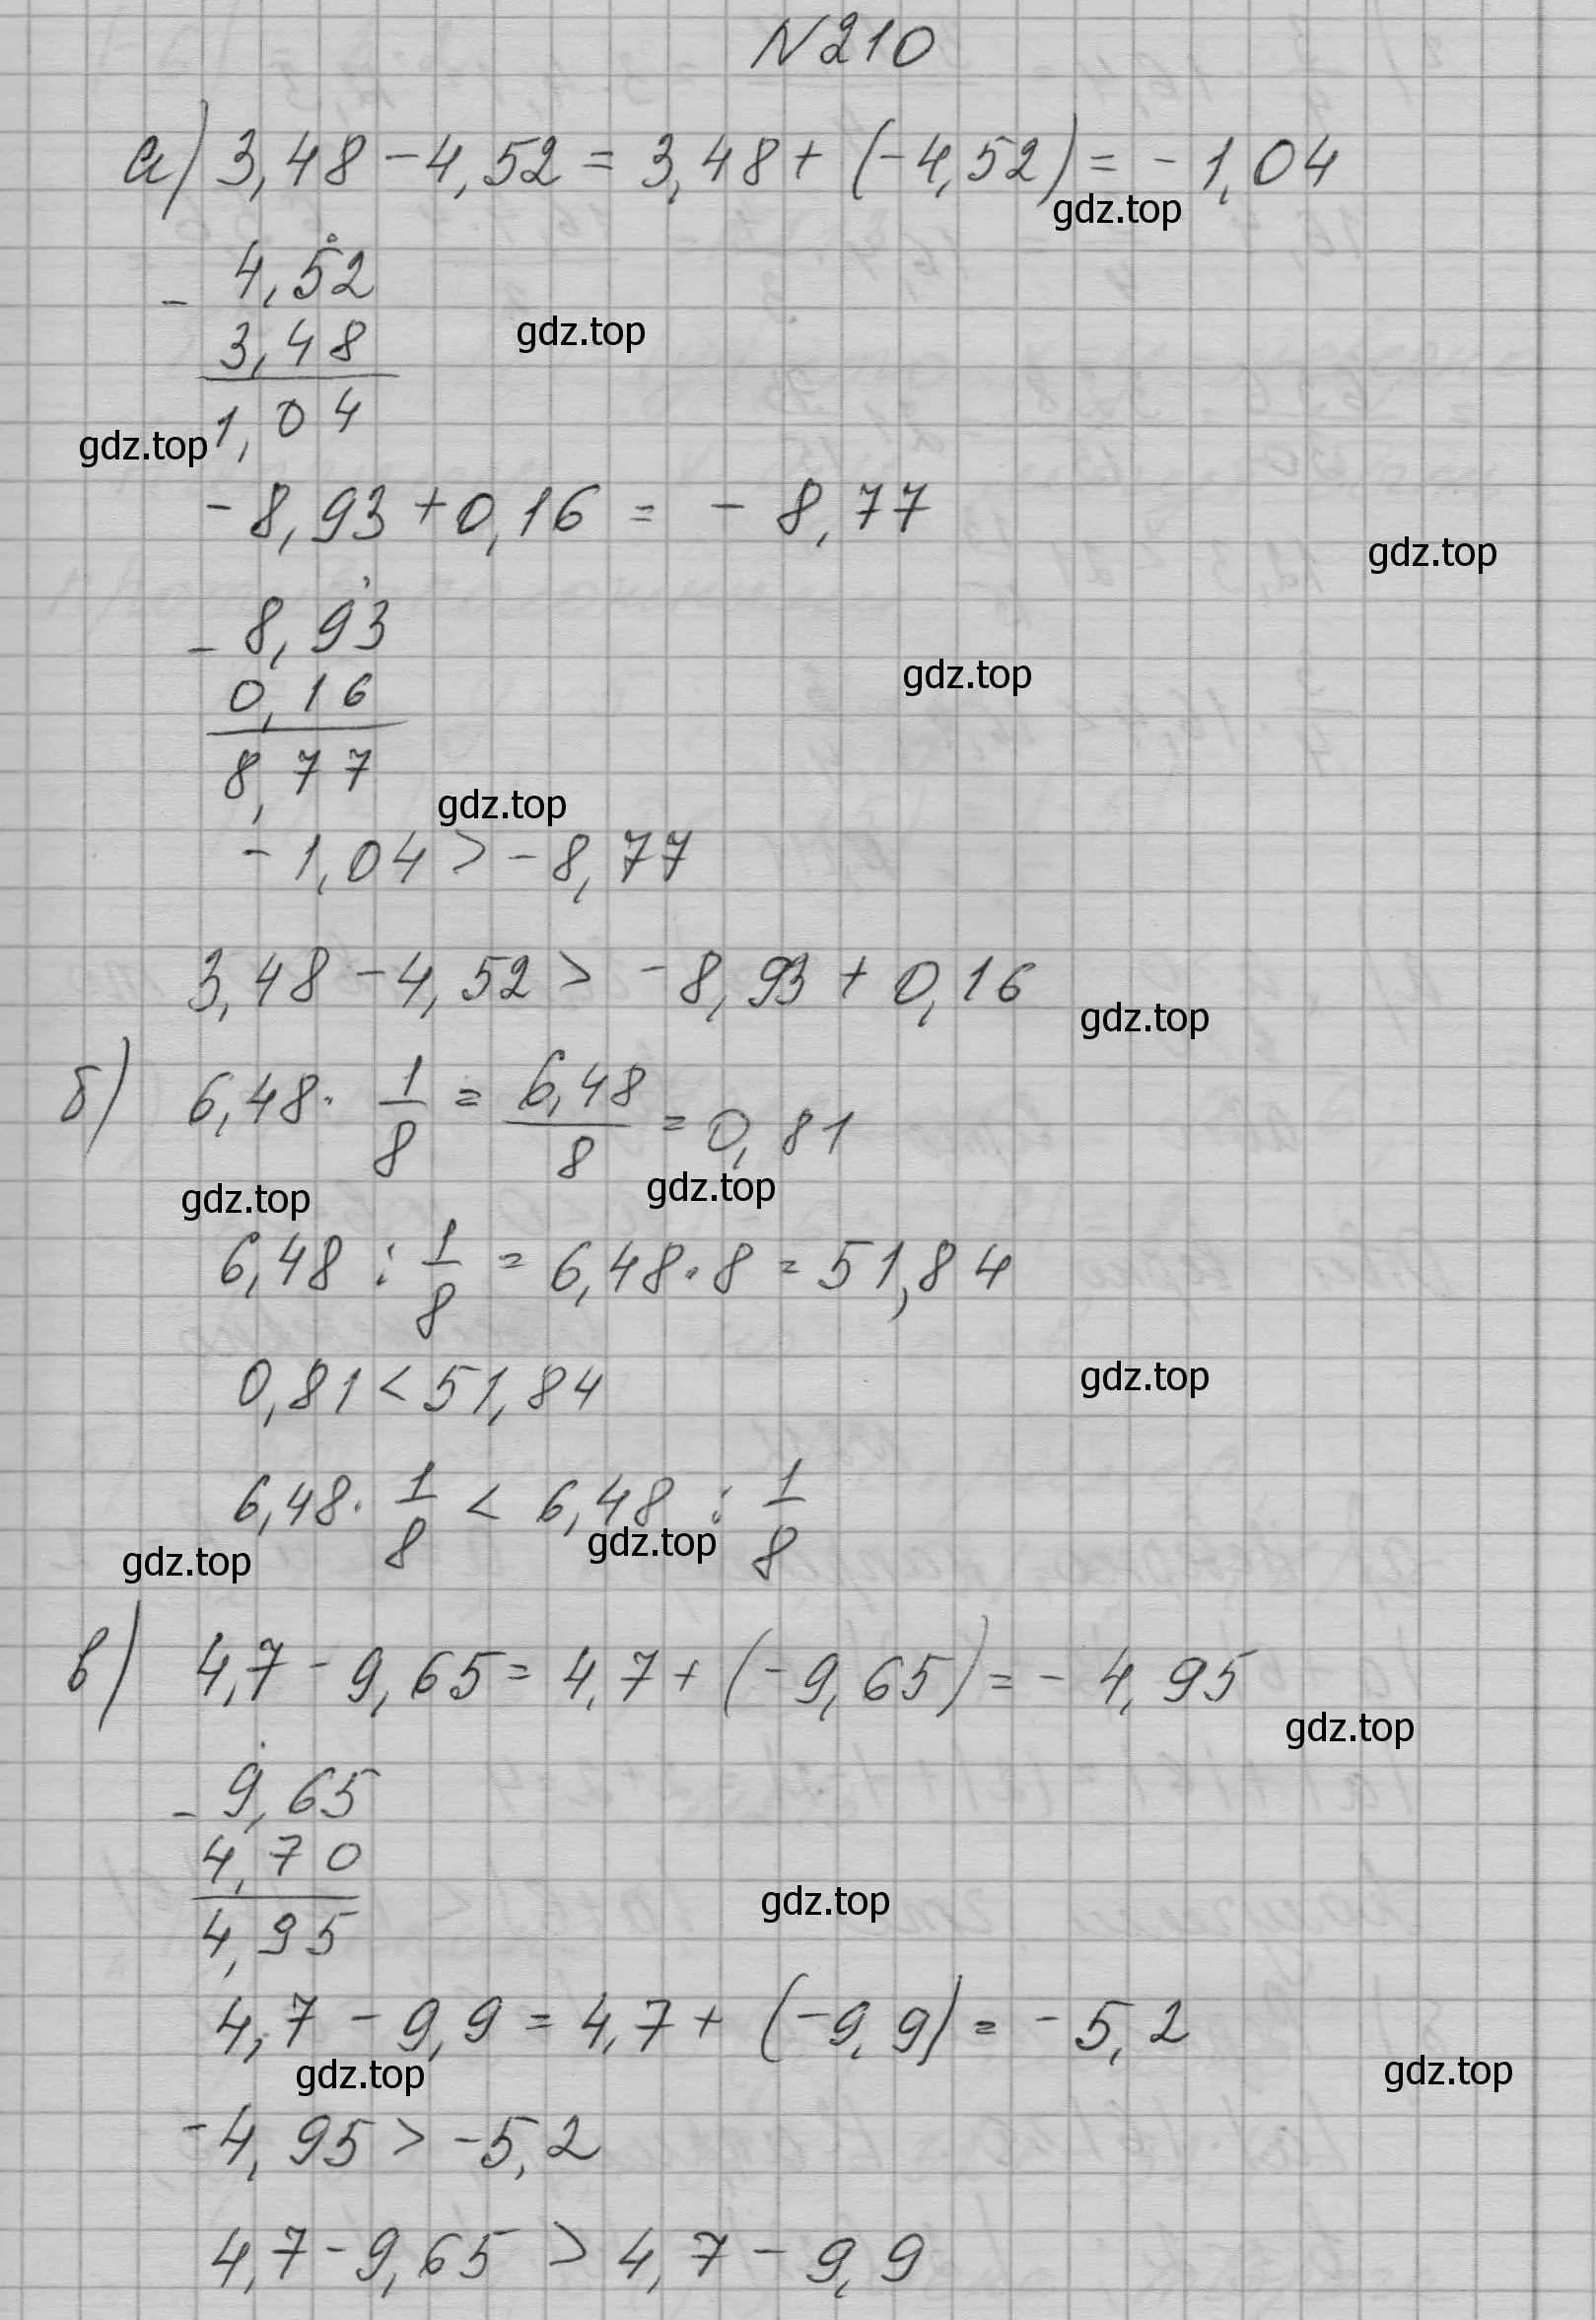 N210
а) 3,48 - 4,52 = 3,48 + (-4,52) = - 1,04
gdz.top
- 4,52
gdz.top
3,48
1,04
gdz.top
- 8,93 + 0,16 = - 8,77
gdz.top
- 8,93
gdz.top
0,16
8,77
gdz.top
- 1,04 > - 8,77
3,48 - 4,52 > - 8,93 + 0,16
gdz.top
б) 6,48 · 1/8 = 6,48/8 = 0,81
gdz.top gdz.top
6,48 : 1/8 = 6,48 · 8 = 51,84
0,81 < 51,84
gdz.top
6,48 · 1/8 < 6,48 : 1/8
gdz.top gdz.top
в) 4,7 - 9,65 = 4,7 + (-9,65) = - 4,95
gdz.top
- 9,65
4,70
gdz.top
4,95
4,7 - 9,9 = 4,7 + (-9,9) = - 5,2
gdz.top gdz.top
- 4,95 > - 5,2
4,7 - 9,65 > 4,7 - 9,9